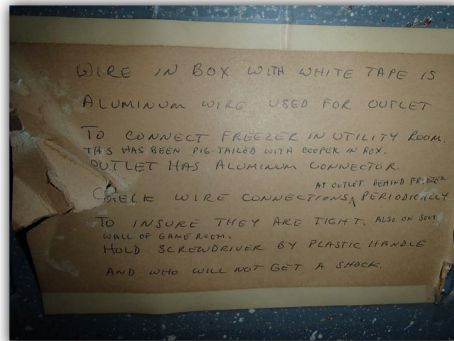 WIRE IN BOX WITH WHITE TAPE IS
ALUMINUM WIRE USED FOR OUTLET
TO CONNECT FREEZER IN UTILITY ROOM.
THIS HAS BEEN PIG-TAILED WITH COOPER IN BOX.
OUTLET HAS ALUMINUM CONNECTOR
AT OUTLET BEHIND FREEZER
CHECK WIRE CONNECTIONS ^ PERIODICALLY
TO INSURE THEY ARE TIGHT. ALSO ON
WALL OF GAME ROOM.
HOLD SCREWDRIVER BY PLASTIC HANDLE
AND WHO WILL NOT GET A SHOCK.